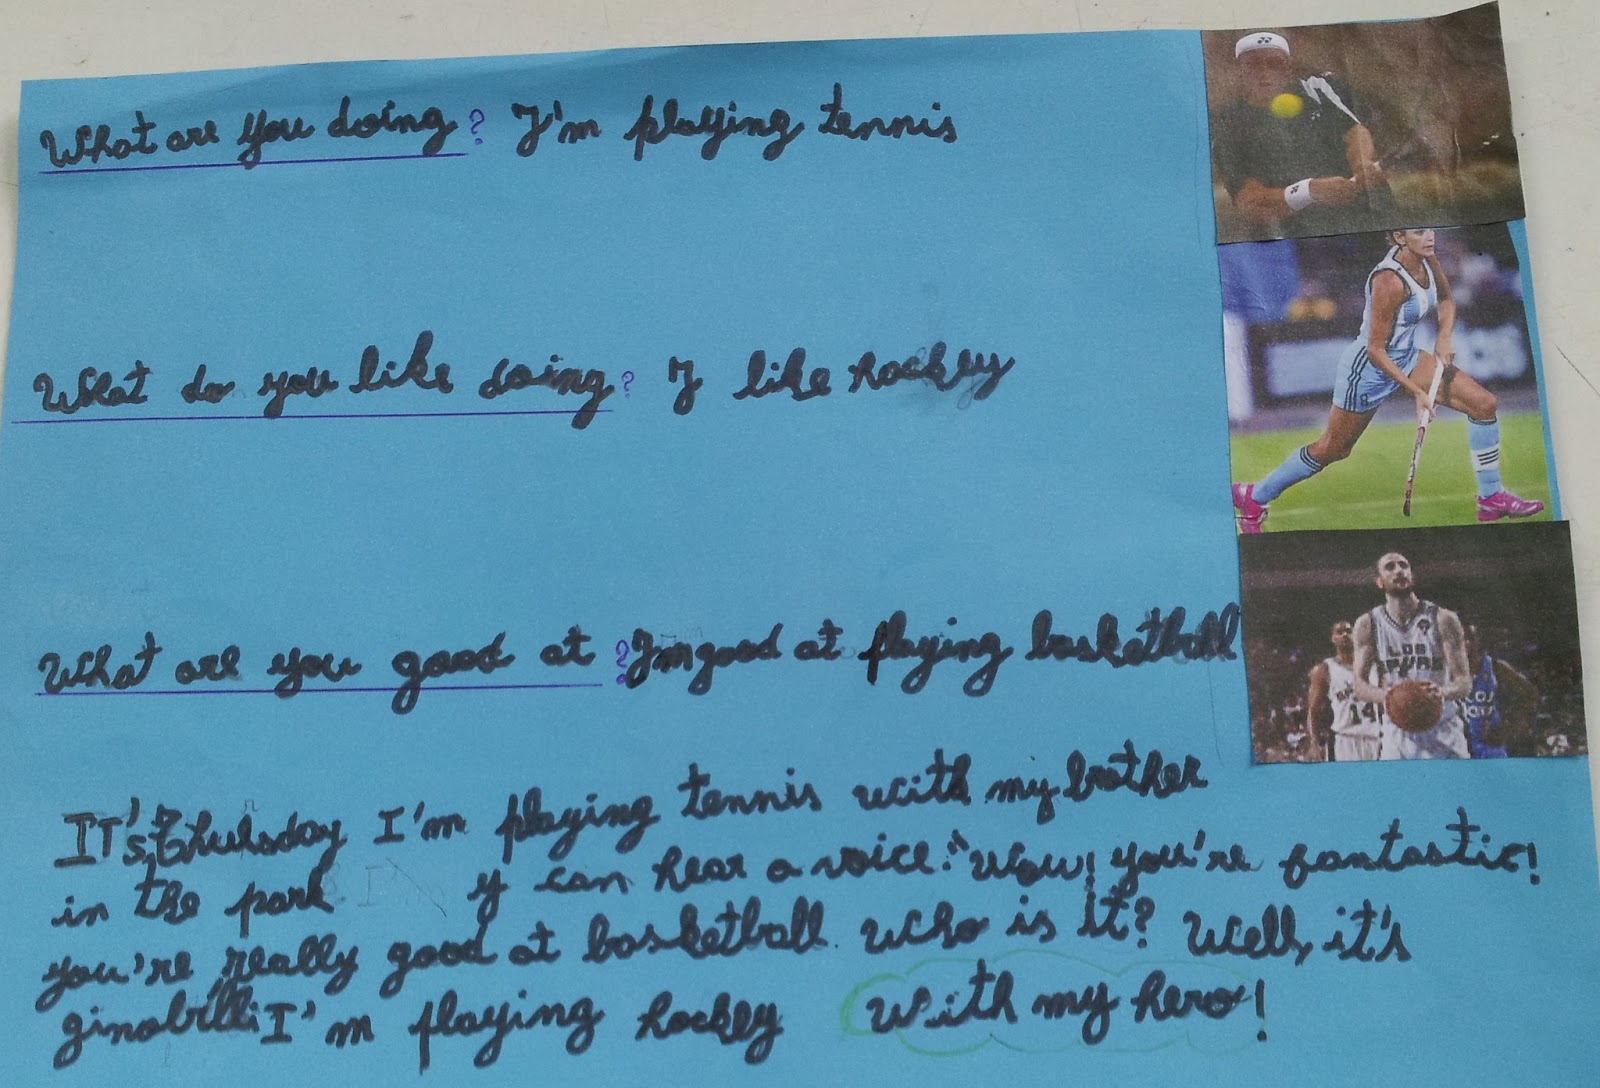 What are you doing? I'm playing tennis
What do you like doing? I like hockey
What are you good at? I'm good at playing basketball
LOS
SPURS
14
IT's thursday I'm playing tennis with my brother
in the park. I can hear a voice: "Wow! you're fantastic!
you're really good at basketball. Who is it? Well, it's
ginobilli I'm playing hockey with my hero!